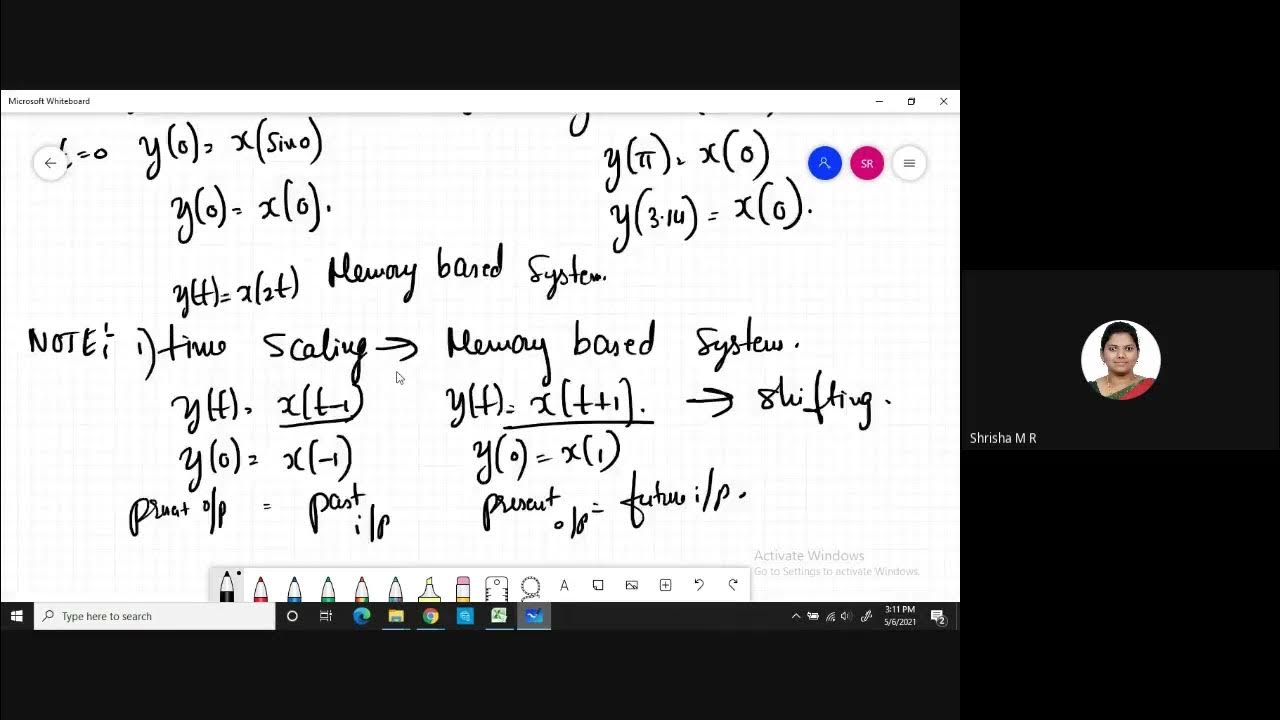 Microsoft Whiteboard
t=0 y(0) = x(sin0)
y(0) = x(0).
y(π) = x(0)
y(3.14) = x(0).
SR
y(t) = x(2t) Memory based System.
NOTE: 1) time Scaling → Memory based System.
y(t) = x(t-1) y(t) = x(t+1). → Shifting.
y(0) = x(-1) y(0) = x(1)
o/p = past i/p present o/p = future i/p.
Activate Windows
Go to Settings to activate Windows.
A
Type here to search
3:11 PM
5/6/2021
2
Shrisha M R